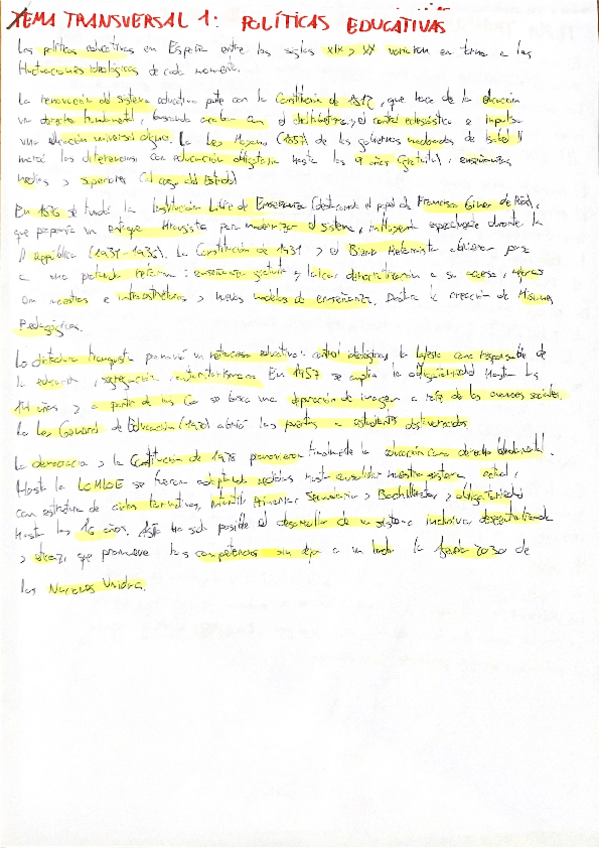 TEMA TRANSVERSAL 1: POLÍTICAS EDUCATIVAS
Las políticas educativas en España entre los siglos XIX y XX variaron en torno a las
fluctuaciones ideológicas de cada momento.
La renovación del sistema educativo parte con la Constitución de 1812, que hace de la educación
un derecho fundamental, buscando acabar con el analfabetismo, el control eclesiástico e impulsa
una educación universal. La Ley Moyano (1857) de los gobiernos moderados de Isabel II
marcó las diferencias con educación obligatoria hasta los 9 años (gratuita), enseñanzas
medias y superiores (al cargo del Estado)
En 1876 se fundó la Institución Libre de Enseñanza (destacando el papel de Francisco Giner de los Ríos),
que proponía un enfoque para modernizar el sistema, especialmente durante la
II República (1931-1936). La Constitución de 1931 y el Bienio Reformista abrieron paso
a una profunda reforma: enseñanza gratuita y laica, democratización a su acceso,
con maestros e infraestructuras y nuevos modelos de enseñanza. Destaca la creación de Misiones
Pedagógicas.
La dictadura franquista promovió un retroceso educativo: control ideológico, la Iglesia como responsable de
la educación, segregación, autoritarismo. En 1957 se amplía la obligatoriedad hasta los
14 años y a partir de los 60 se busca una depuración de imagen a raíz de los avances sociales.
La Ley General de Educación (1970) abrió las puertas a estudiantes
La democracia y la Constitución de 1978 promovieron finalmente la educación como derecho fundamental.
Hasta la LOMLOE se fueron adaptando hasta consolidar nuestro sistema actual,
con estructura de ciclos formativos, Infantil, Primaria, Secundaria y Bachillerato, y obligatoriedad
hasta los 16 años. Esto ha sido posible el desarrollo de un sistema inclusivo, descentralizado
y eficaz, que promueve las competencias sin dejar a un lado la Agenda 2030 de
las Naciones Unidas.